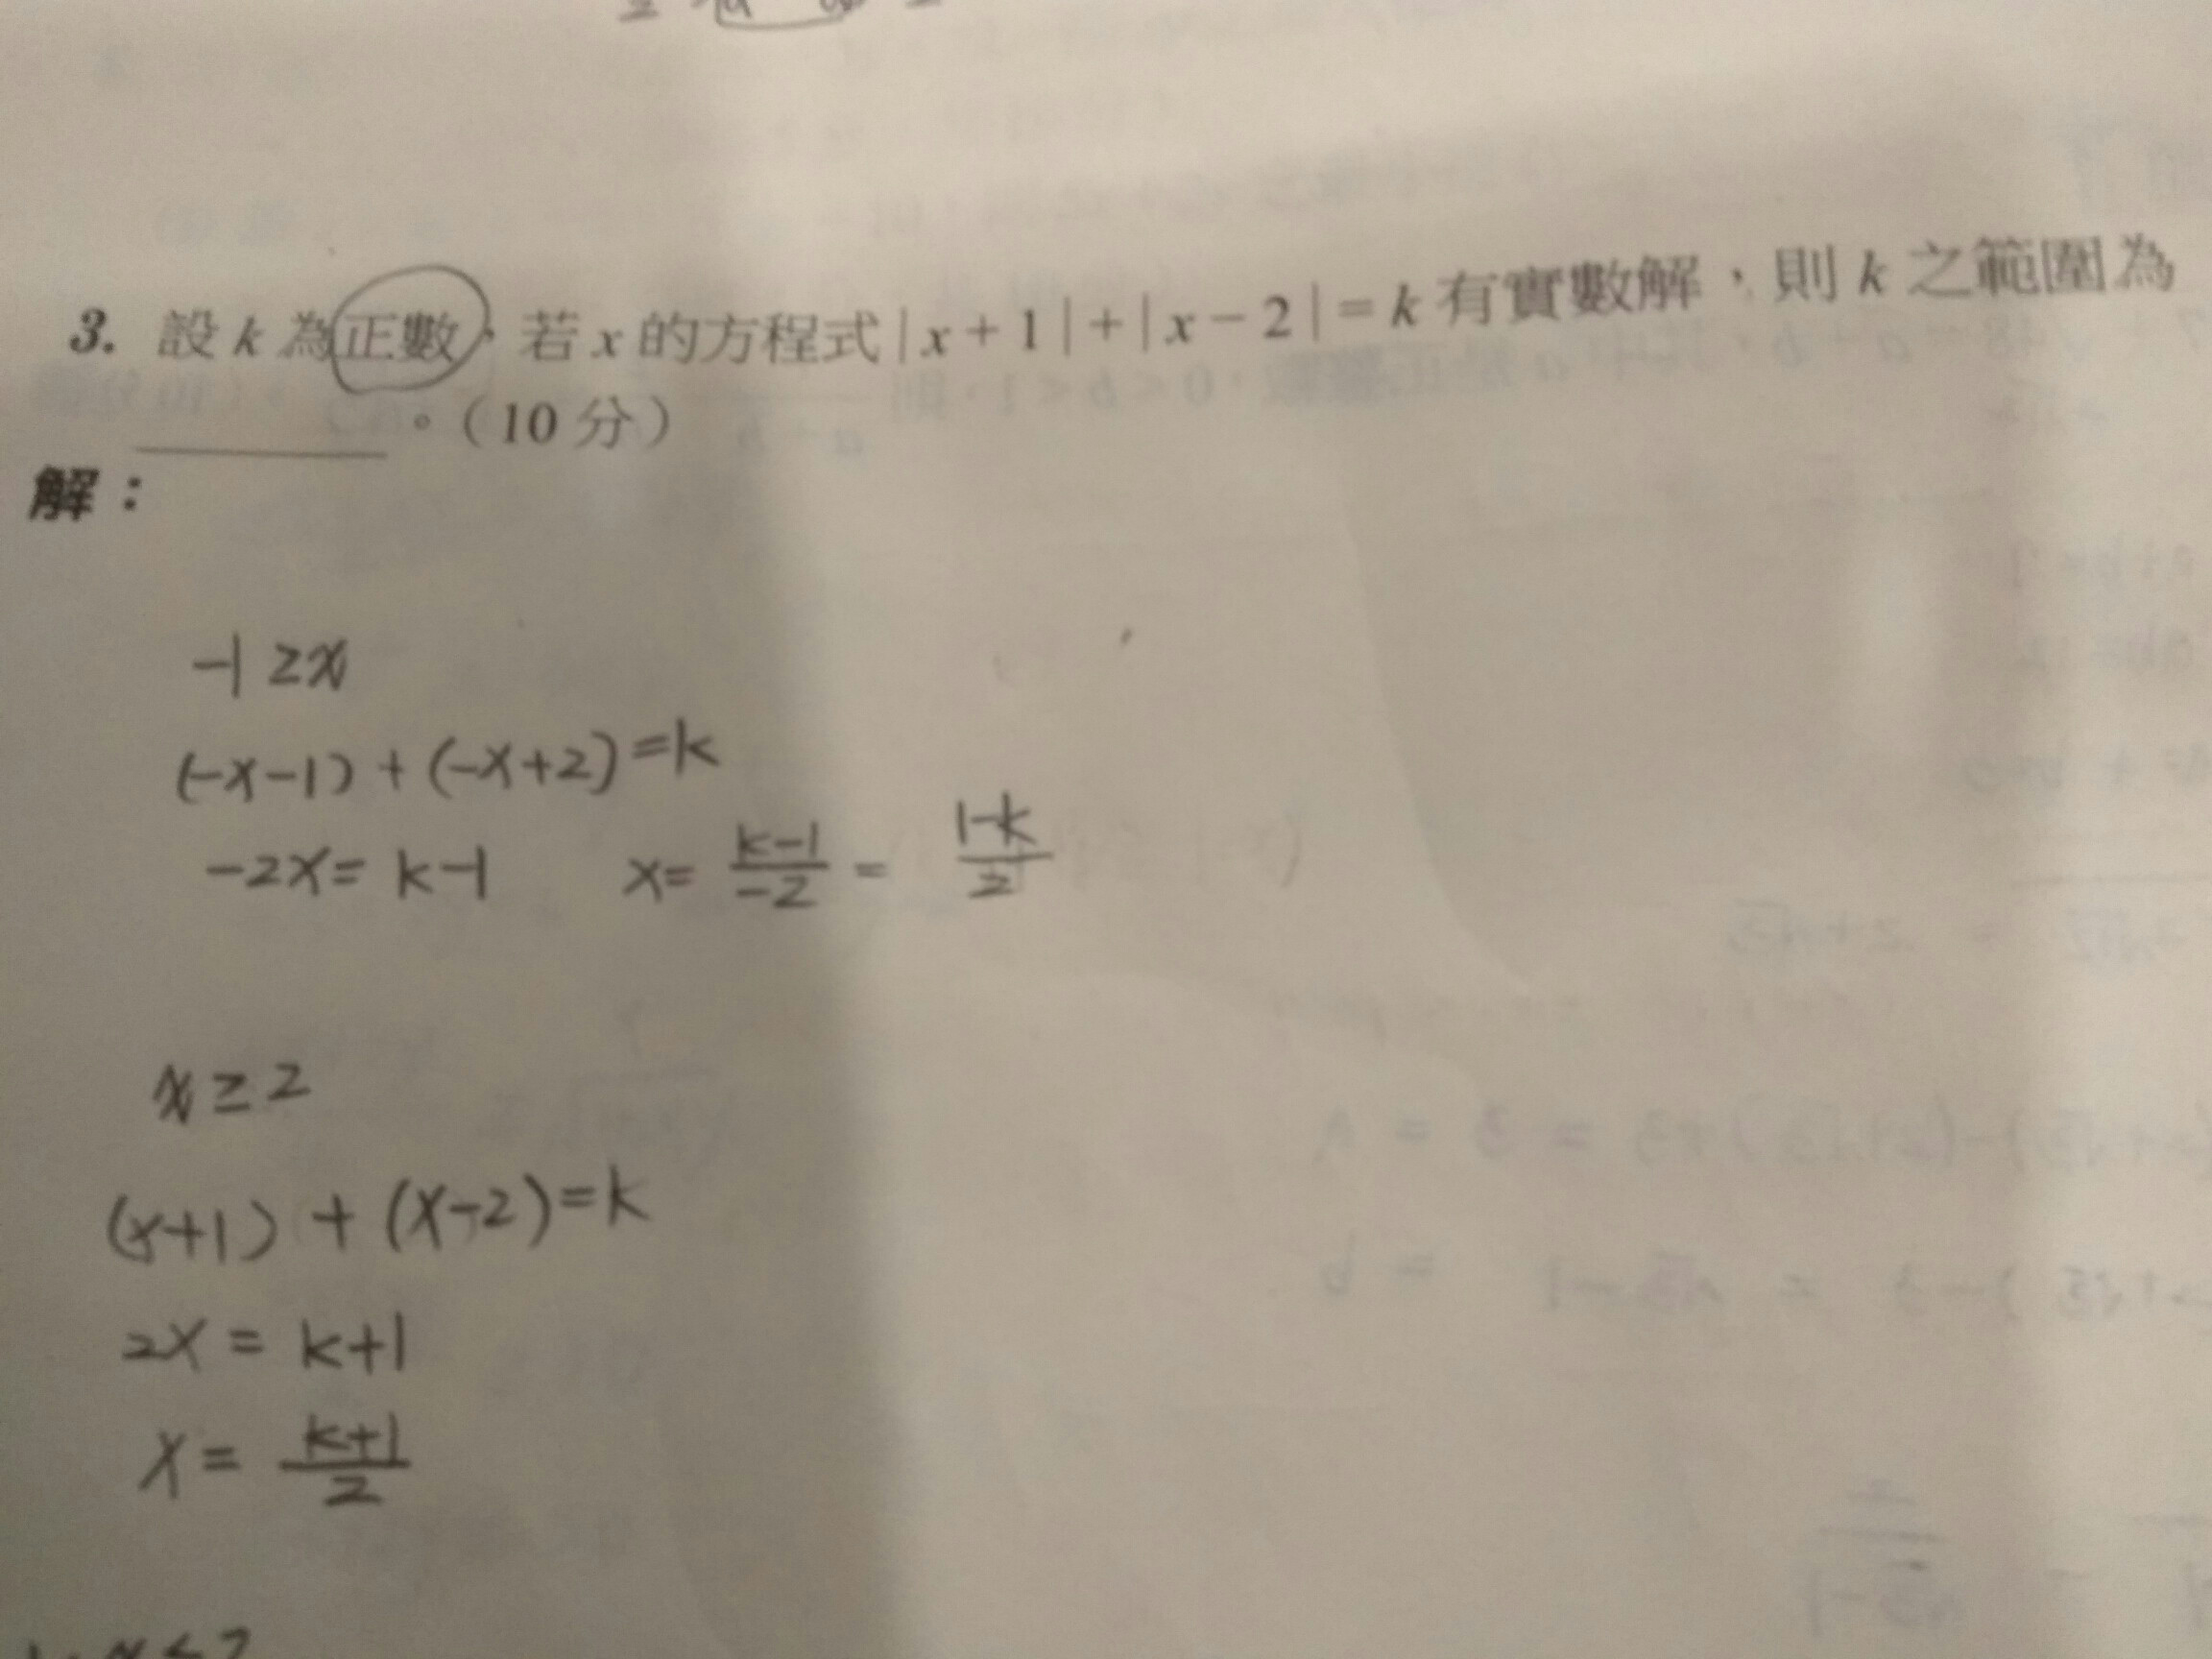 3. 設 k 為正數，若 x 的方程式 | x + 1 | + | x − 2 | = k 有實數解，則 k 之範圍為
______。（10 分）
解：
-1 ≥ x
(-x-1) + (-x+2) = k
-2x = k-1 x = \frac{k-1}{-2} = \frac{1-k}{2}
x ≥ 2
(x+1) + (x-2) = k
2x = k+1
x = \frac{k+1}{2}